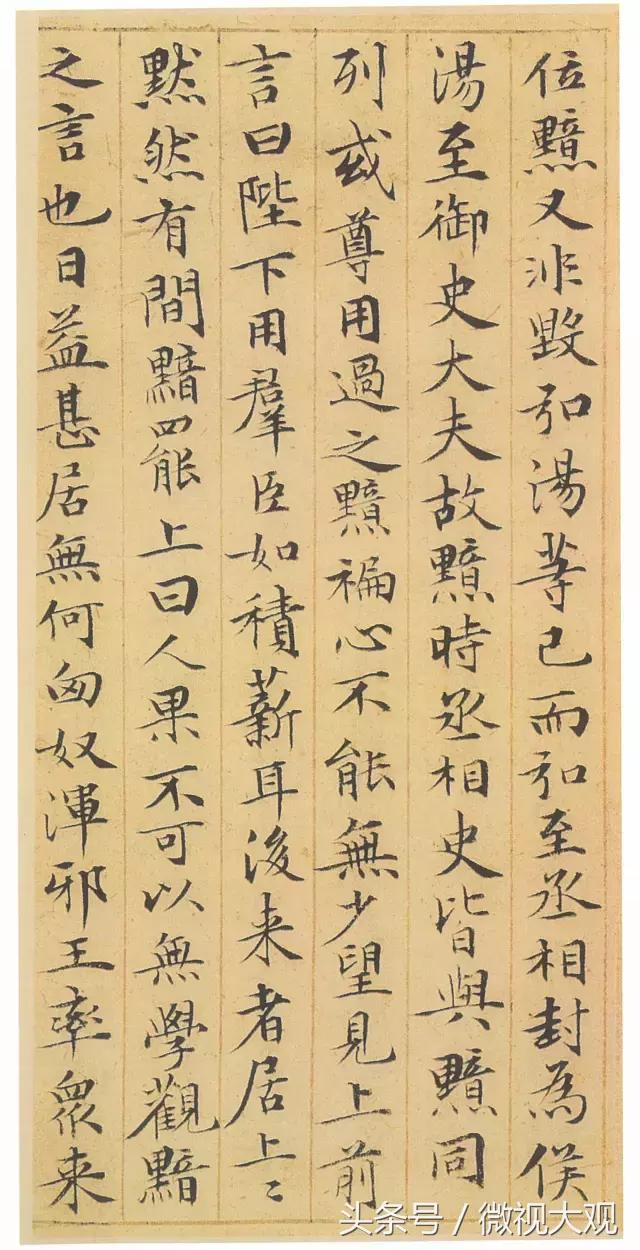 位黯又非毀弘湯等已而弘至丞相封為侯
湯至御史大夫故黯時丞相史皆與黯同
列或尊用過之黯褊心不能無少望見上前
言曰陛下用羣臣如積薪耳後来者居上〻
黙然有間黯罷上曰人果不可以無學觀黯
之言也日益甚居無何匈奴渾邪王率衆来
头条号/微视大观